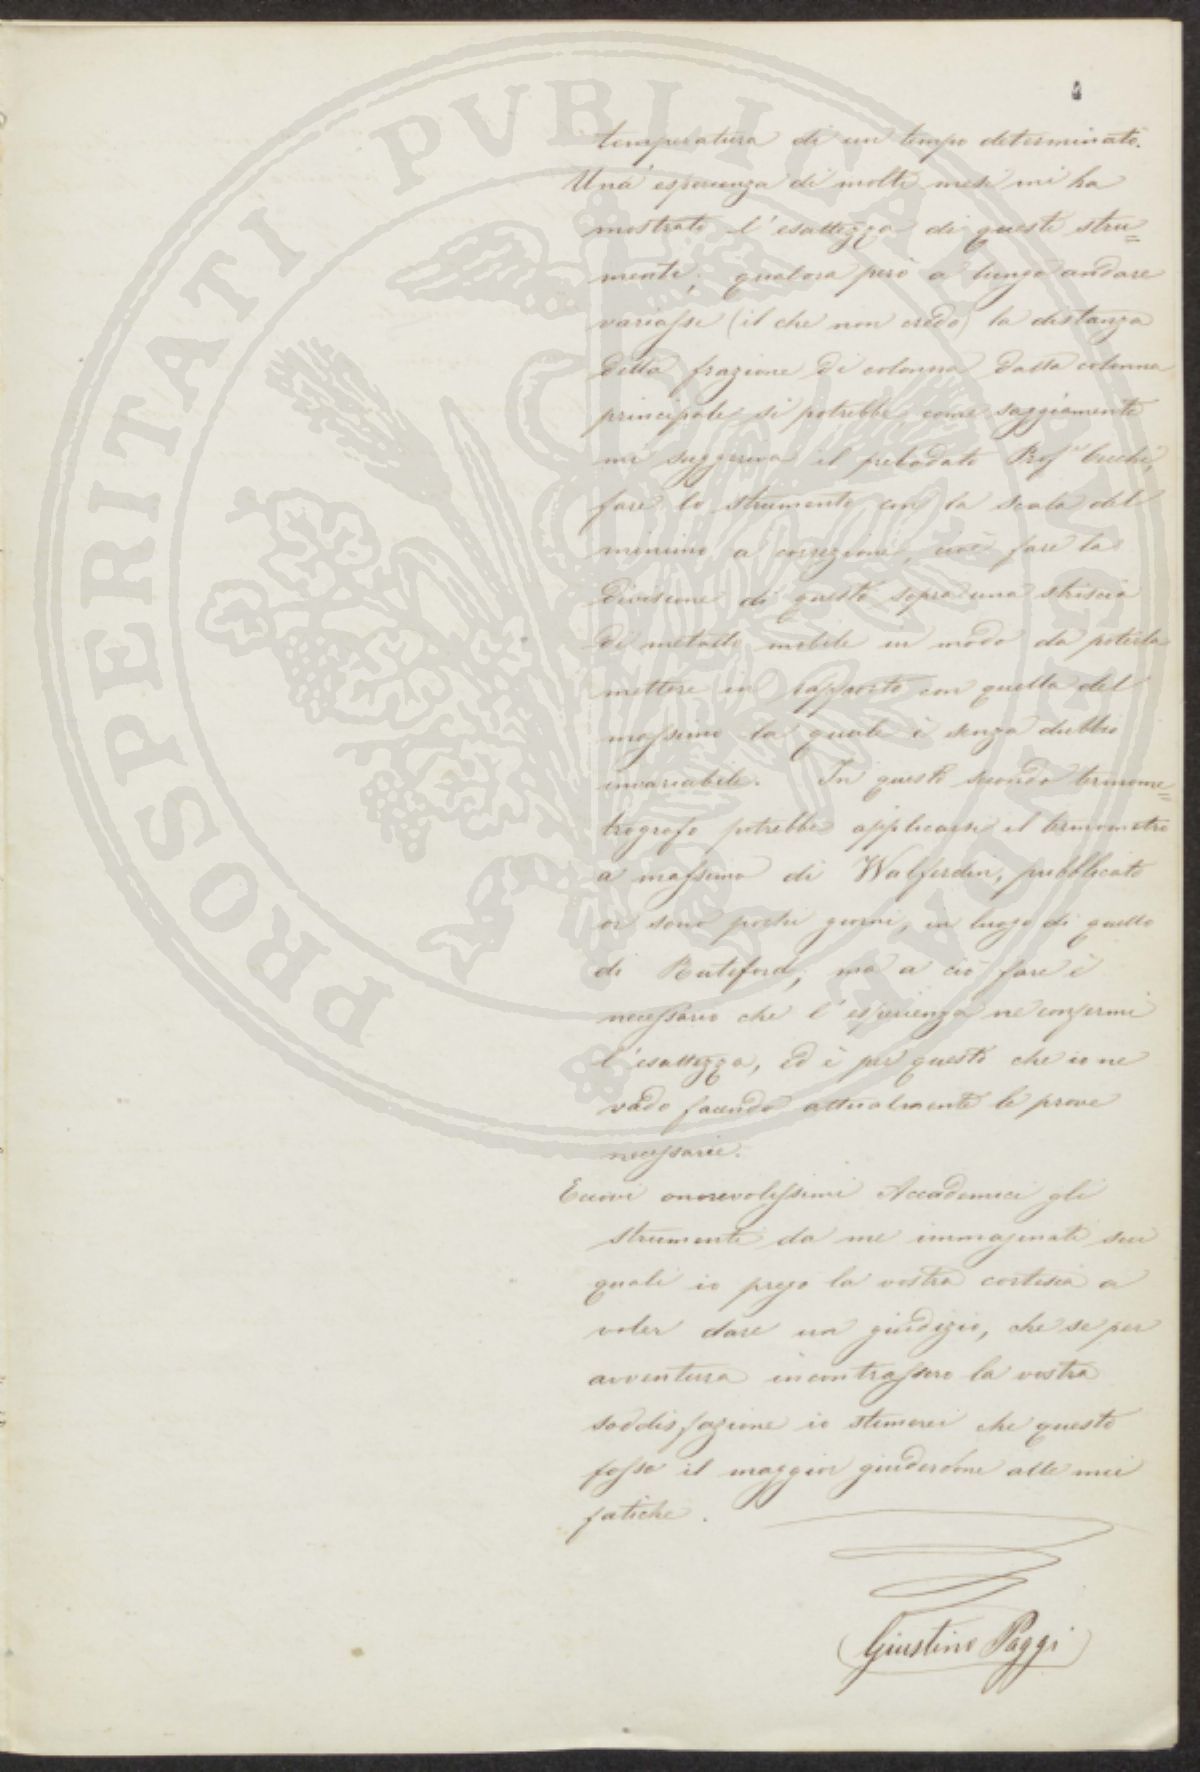 4
temperatura di un tempo determinato.
Una esperienza di molti mesi mi ha
mostrato l'esattezza di questi stru=
menti, qualora però a lungo andare
variasse (il che non credo) la distanza
della frazione di colonna dalla colonna
principale si potrebbe, come saggiamente
mi suggeriva il prelodato Prof.
fare lo strumento con la scala del
minimo a correzione, cioè fare la
divisione di questo sopra una striscia
di metallo mobile in modo da poterla
mettere in rapporto con quella del
massimo la quale è senza dubbio
invariabile. In questo secondo termome=
trografo potrebbe applicarsi il termometro
a massimo di Walferdin, pubblicato
or sono pochi giorni, in luogo di quello
di Ruteford; ma a ciò fare è
necessario che l'esperienza ne confermi
l'esattezza, ed è per questo che io ne
vado facendo attualmente le prove
necessarie.
Eccovi onorevolissimi Accademici gli
strumenti da me immaginati sui
quali io prego la vostra cortesia a
voler dare un giudizio, che se per
avventura incontrassero la vostra
soddisfazione io stimerei che questo
fosse il maggior guiderdone alle mie
fatiche.
Giustino Paggi
PROSPERITATI PVBLICAE AVGENDAE